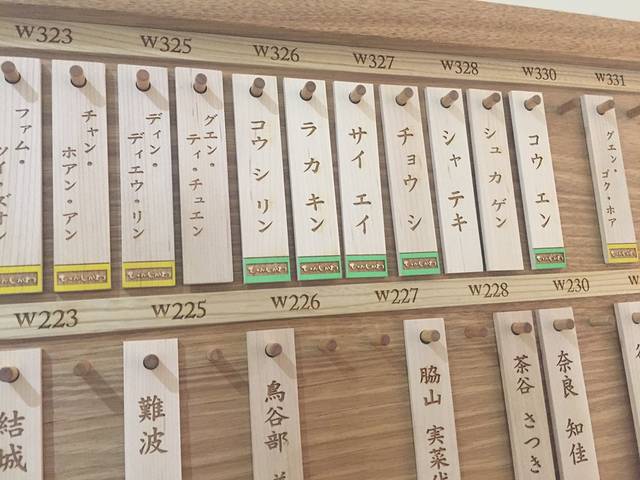 W323
W325
W326
W327
W328
W330
W331
チャン・
ホアン・アン
ディン・
ディエウ・リン
グエン・
ティ・チュエン
コウ シリン
ラ カキン
サイ エイ
チョウ シ
シャ テキ
シュ カゲン
コウ エン
グエン・
ゴク・ホア
W223
W225
W226
W227
W228
W230
結城
難波
鳥谷部
脇山 実菜
茶谷 さつき
奈良 知佳